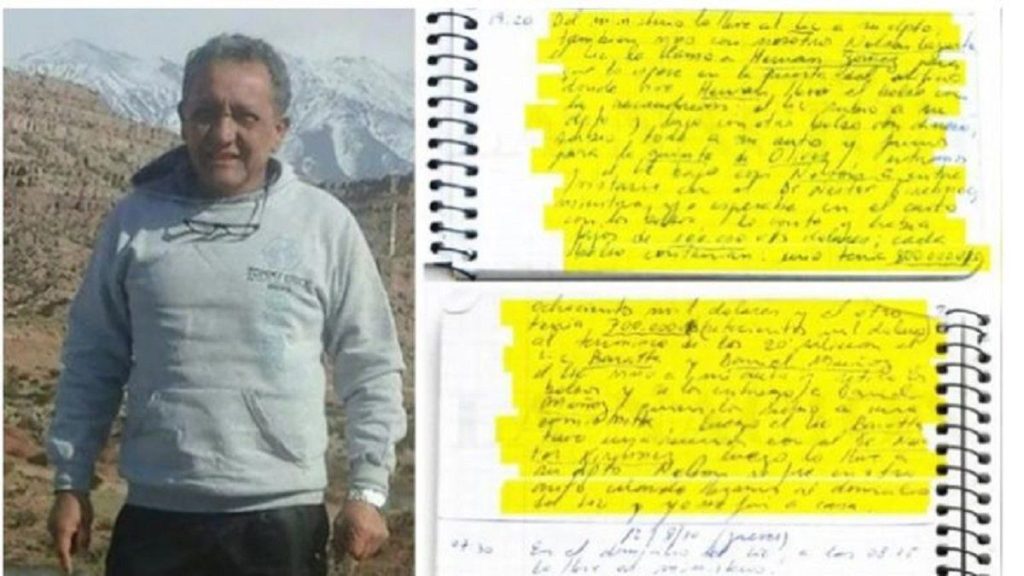 19:20 Del ministerio lo lleve al Lic a su dpto,
tambien vino con nosotro Nelson Lazarte
el Lic lo llamo a Hernan Gomez para
que lo espere en la puerta del edificio
donde vive Hernan llevo el bolso con
la recaudación el Lic subio a su
dpto y bajo con otro bolso con dinero,
todo a mi auto y fuimos
para la quinta de Olivos, entramos
y el Lic bajo con Nelson
con el Dr Nestor Kirchner,
mientras yo esperaba en el auto
con los bolsos
fajos de 100.000 dolares, cada
bolso contenian: uno tenia 800.000
ochocientos mil dolares y el otro
tenia 700.000 (setecientos mil dolares)
al termino de los 20 minutos el
Lic Baratta y Daniel Muñoz
el Lic vino a mi auto y retiro los
bolsos y se los entrego a Daniel
Muñoz, quien los subio a una
camioneta, luego el Lic Baratta
tuvo una reunion con el Dr Nes-
tor Kirchner luego lo lleve a
su dpto Nelson
auto cuando llegamos al domicilio
del Lic y yo me fui a casa.
12/8/10 (jueves)
07:30 En el domicilio del Lic, a las 08:15
lo lleve al ministerio.